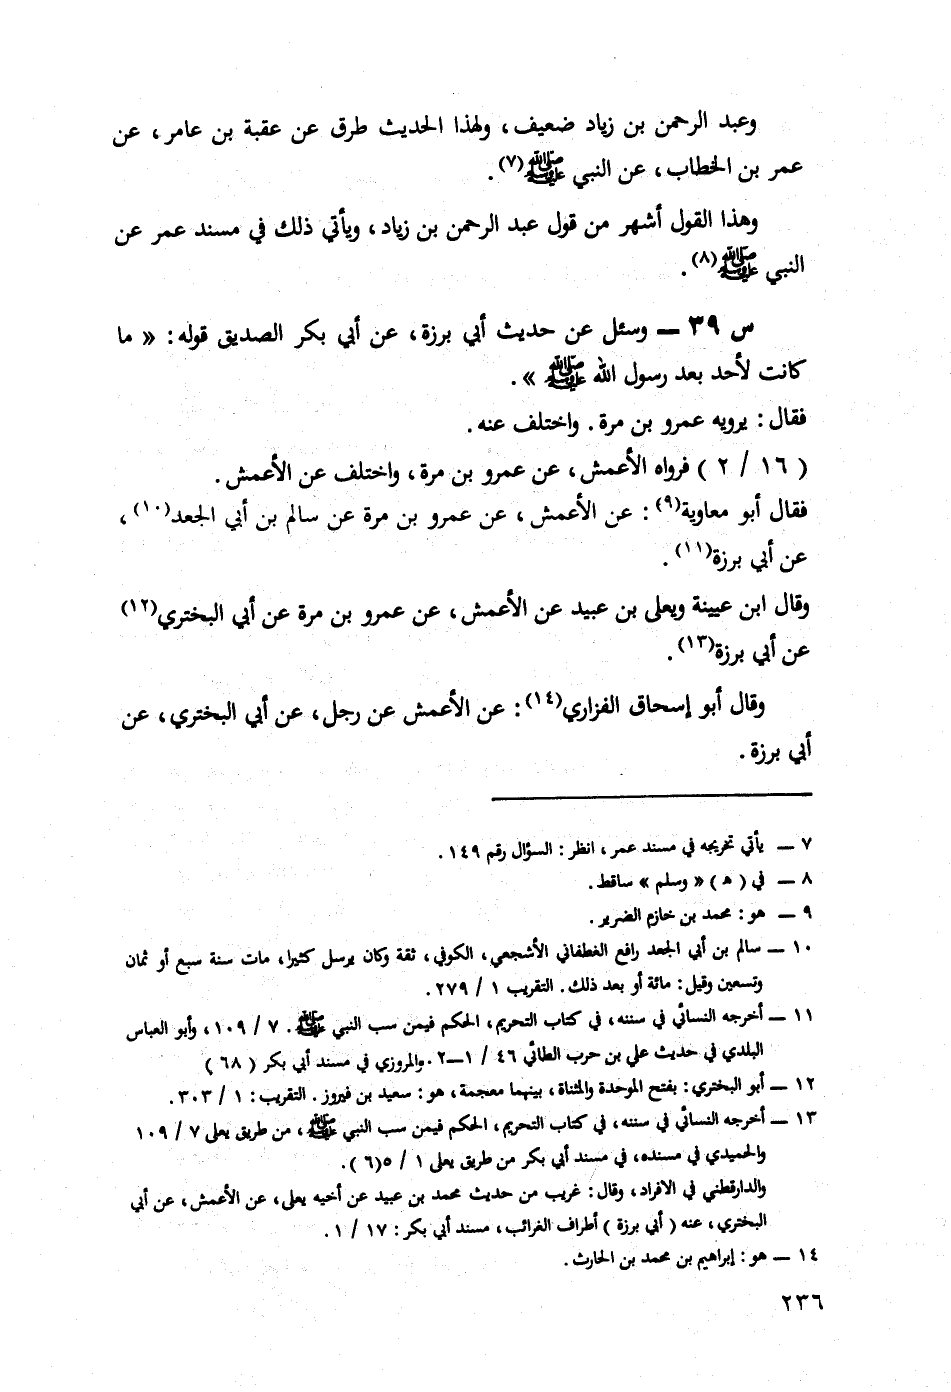 وعبد الرحمن بن زياد ضعيف، ولهذا الحديث طرق عن عقبة بن عامر، عن
عمر بن الخطاب، عن النبي ﷺ(٧).
وهذا القول أشهر من قول عبد الرحمن بن زياد، ويأتي ذلك في مسند عمر عن
النبي ﷺ(٨).
س ٣٩ ــ وسئل عن حديث أبي برزة، عن أبي بكر الصديق قوله: « ما
كانت لأحد بعد رسول الله ﷺ ».
فقال: يرويه عمرو بن مرة. واختلف عنه.
( ١٦ / ٢ ) فرواه الأعمش، عن عمرو بن مرة، واختلف عن الأعمش.
فقال أبو معاوية(٩): عن الأعمش، عن عمرو بن مرة عن سالم بن أبي الجعد(١٠)،
عن أبي برزة(١١).
وقال ابن عيينة ويعلى بن عبيد عن الأعمش، عن عمرو بن مرة عن أبي البختري(١٢)
عن أبي برزة(١٣).
وقال أبو إسحاق الفزاري(١٤): عن الأعمش عن رجل، عن أبي البختري، عن
أبي برزة.
٧ ــ يأتي تخريجه في مسند عمر، انظر: السؤال رقم ١٤٩.
٨ ــ في ( هـ ) « وسلم » ساقط.
٩ ــ هو: محمد بن خازم الضرير.
١٠ ــ سالم بن أبي الجعد رافع الغطفاني الأشجعي، الكوفي، ثقة وكان يرسل كثيرا، مات سنة سبع أو ثمان
وتسعين وقيل: مائة أو بعد ذلك. التقريب ١ / ٢٧٩.
١١ ــ أخرجه النسائي في سننه، في كتاب التحريم، الحكم فيمن سب النبي ﷺ. ٧ / ١٠٩، وأبو العباس
البلدي في حديث علي بن حرب الطائي ٤٦ / ١ــ٢. والمروزي في مسند أبي بكر ( ٦٨ )
١٢ ــ أبو البختري: بفتح الموحدة والمثناة، بينهما معجمة، هو: سعيد بن فيروز. التقريب: ١ / ٣٠٣.
١٣ ــ أخرجه النسائي في سننه، في كتاب التحريم، الحكم فيمن سب النبي ﷺ، من طريق يعلى ٧ / ١٠٩
والحميدي في مسنده، في مسند أبي بكر من طريق يعلى ١ / ٥(٦).
والدارقطني في الافراد، وقال: غريب من حديث محمد بن عبيد عن أخيه يعلى، عن الأعمش، عن أبي
البختري، عنه ( أبي برزة ) أطراف الغرائب، مسند أبي بكر: ١٧ / ١.
١٤ ــ هو: إبراهيم بن محمد بن الحارث.
٢٣٦